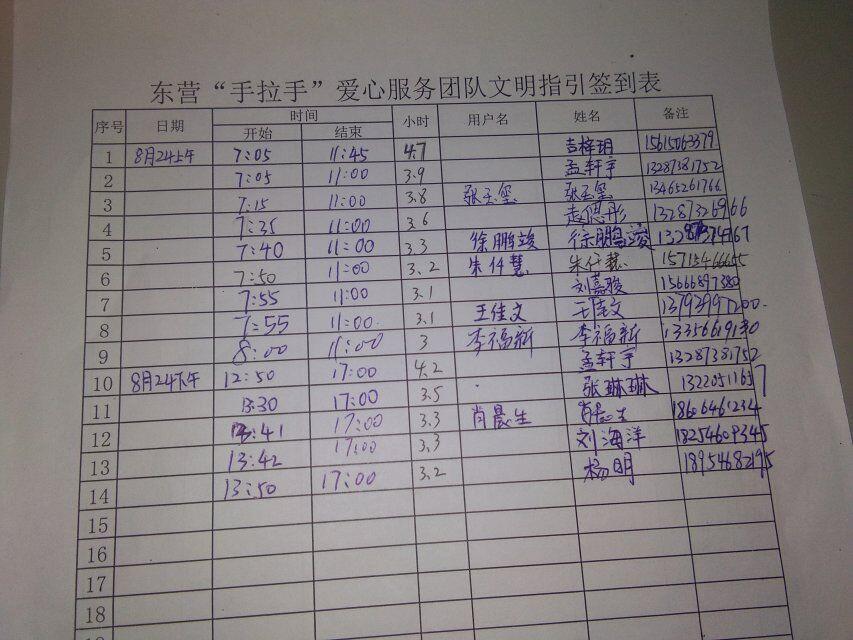 东营“手拉手”爱心服务团队文明指引签到表
序号 日期 时间 小时 用户名 姓名 备注
开始 结束
1 8月24上午 7:05 11:45 4.7 吉梓玥 15615063379
2 7:05 11:00 3.9 孟轩宇 13287381752
3 7:15 11:00 3.8 张玉玺 张玉玺 13465261766
4 7:35 11:00 3.6 13287326966
5 7:40 11:00 3.3 徐鹏竣 徐鹏竣
6 7:50 11:00 3.2 朱仟慧 朱仟慧 15715466655
7 7:55 11:00 3.1 刘嘉骏 15666897380
8 7:55 11:00 3.1 王佳文 王佳文 13793997200
9 8:00 11:00 3 李福新 李福新 13356619130
10 8月24下午 12:50 17:00 4.2 孟轩宇 13287381752
11 13:30 17:00 3.5 张琳琳 13220511657
12 13:41 17:00 3.3 肖晨生 肖晨生 18606461234
13 13:42 17:00 3.3 刘海洋 18254609345
14 13:50 17:00 3.2 杨明 18954682195
15
16
17
18